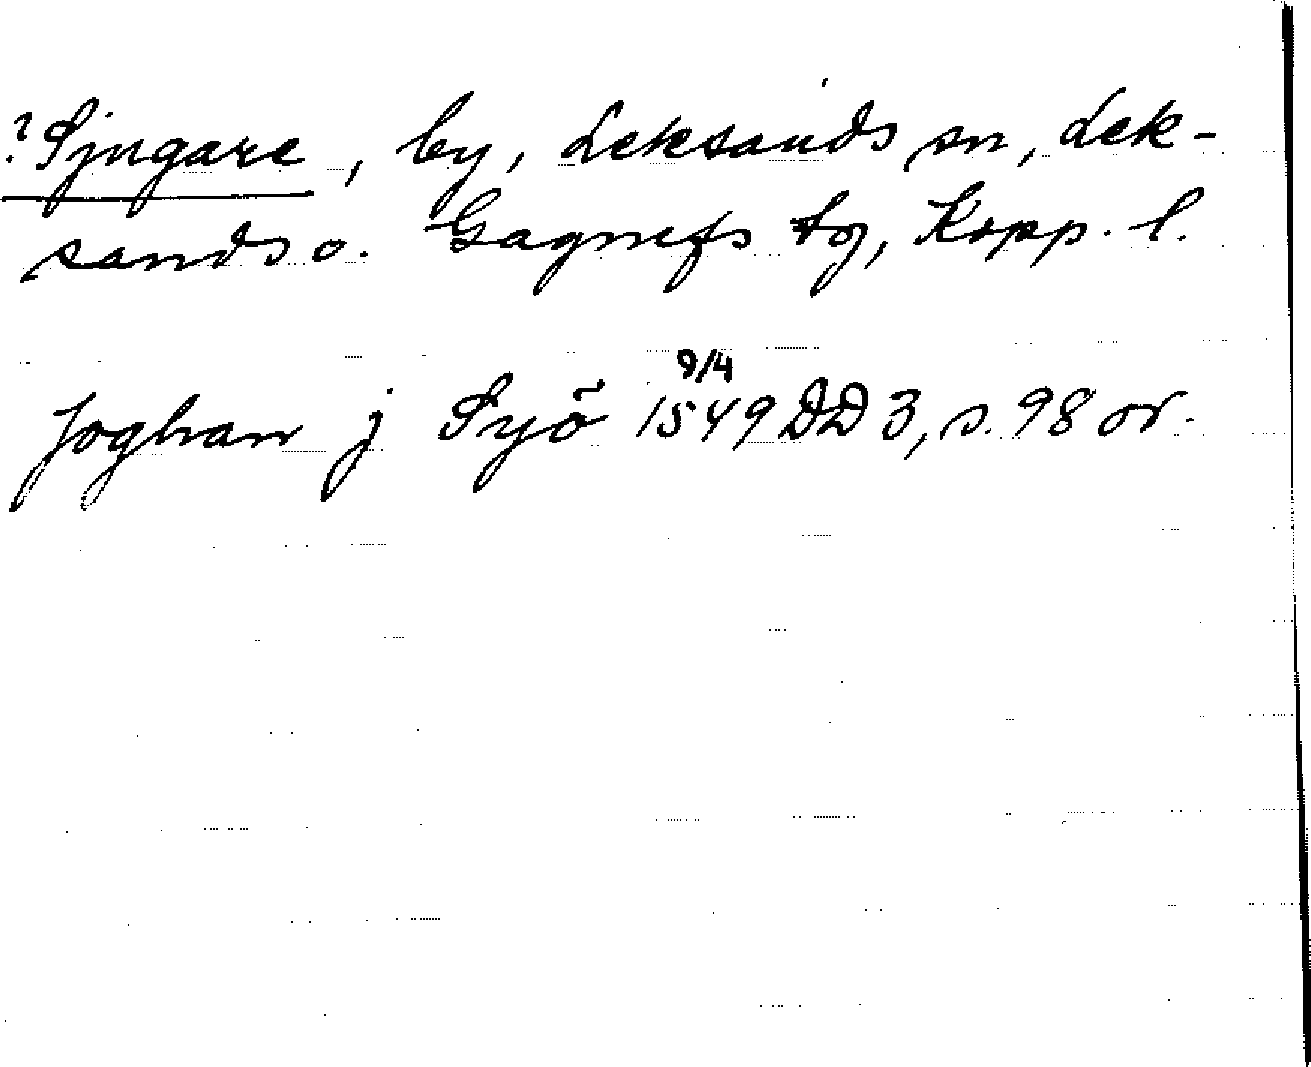 ? Sjugare, by, Leksands sn, Lek-
sands o. Gagnefs tg, Kopp. l.
Joghan j Syö 1549 9/4 DD 3, s. 98 or.